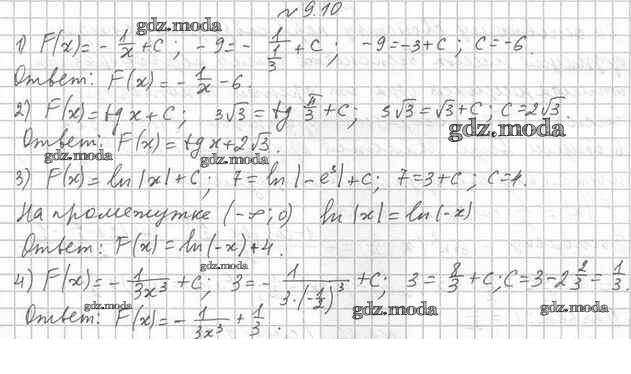 № 9.10
gdz.moda
1) F(x) = - 1/x + C ; - 9 = - 1/(1/3) + C ; - 9 = - 3 + C ; C = - 6.
Ответ: F(x) = - 1/x - 6.
2) F(x) = tg x + C; 3√3 = tg π/3 + C; 3√3 = √3 + C; C = 2√3.
gdz.moda
Ответ: F(x) = tg x + 2√3.
gdz.moda gdz.moda
3) F(x) = ln|x| + C; 7 = ln|-e³| + C; 7 = 3 + C; C = 4.
На промежутке (-∞; 0) ln|x| = ln(-x)
Ответ: F(x) = ln(-x) + 4.
gdz.moda
4) F(x) = - 1/3x³ + C; 3 = - 1/(3·(-1/2)³) + C; 3 = 8/3 + C; C = 3 - 2 2/3 = 1/3.
gdz.moda gdz.moda gdz.moda
Ответ: F(x) = - 1/3x³ + 1/3.